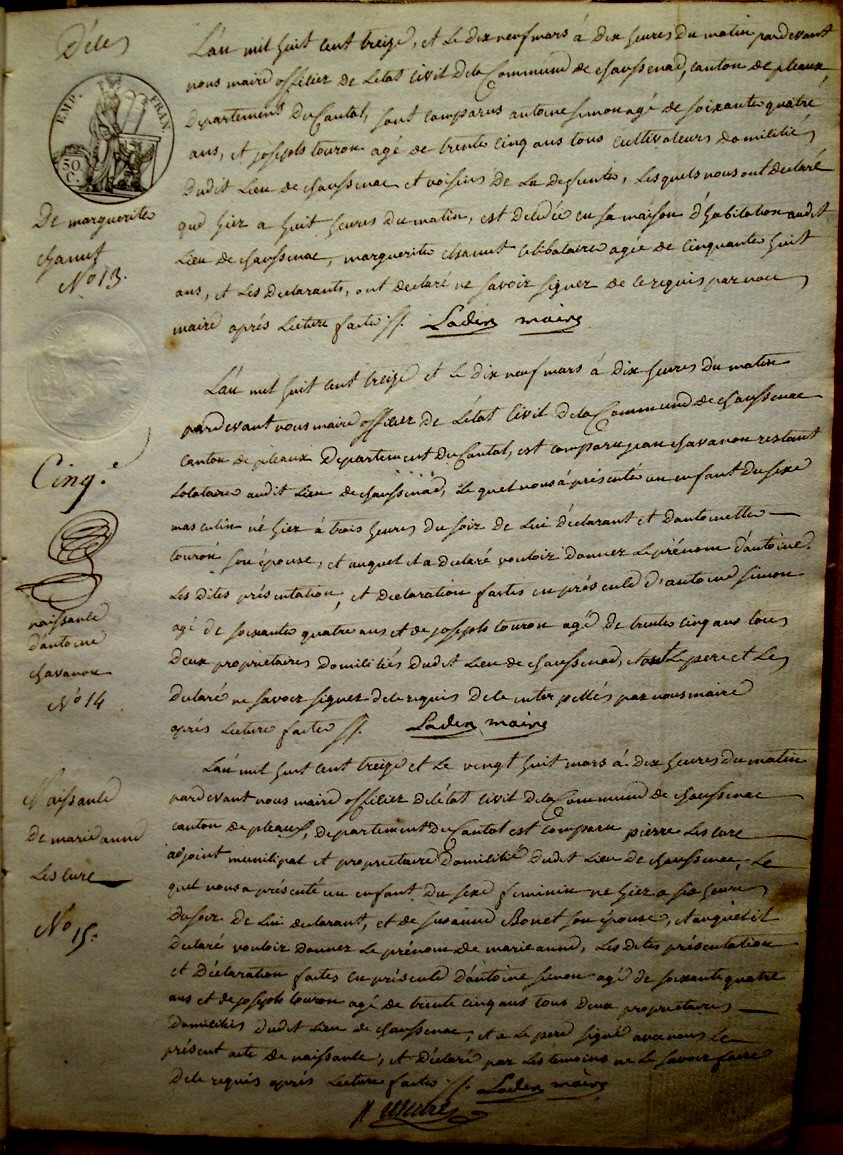 Décès
EMP. FRAN.
De marguerite
chamut
No 13.
L'an mil huit cent treize, et le dix neuf mars à dix heures du matin pardevant
nous maire officier de l'état civil de la Commune de chaussenac, canton de pleaux
departement du Cantal, sont comparus antoine simon agé de soixante quatre
ans, et joseph touron agé de trente cinq ans tous cultivateurs domiciliés
dudit Lieu de chaussenac et voisins de la defunte, Lesquels nous ont declaré
que hier a huit heures du matin, est decedée en sa maison d'habitation audit
Lieu de chaussenac, marguerite chamut celibataire agée de cinquante huit
ans, et Les declarants, ont declaré ne savoir signer de ce requis par nous
maire après Lecture faite
Laden maire
Cinq.e
naissance
d'antoine
chavanon
No 14
L'an mil huit cent treize et le dix neuf mars à dix heures du matin
pardevant nous maire officier de L'état Civil de la Commune de chaussenac
canton de pleaux departement du Cantal, est comparu jean chavanon restant
Locataire audit Lieu de chaussenac, Le quel nous a présenté un enfant du sexe
masculin né hier à trois heures du soir de Lui déclarant et d'antoinette
touron son épouse, et auquel il a declaré vouloir donner Le prénom d'antoine.
Les dites présentation, et declaration faites en présence d'antoine simon
agé de soixante quatre ans et de joseph touron agé de trente cinq ans tous
deux proprietaires domiciliés dudit Lieu de chaussenac, et ont Le pere et Les
declaré ne savoir signer de le requis de le interpellés par nous maire
après Lecture faite
Laden maire
Naissance
de marie anne
Lescure
No 15.
L'an mil huit cent treize et Le vingt huit mars à dix heures du matin
pardevant nous maire officier de l'état civil de la Commune de chaussenac
canton de pleaux, departement du Cantal est comparu pierre Lescure
adjoint municipal et proprietaire domicilié dudit Lieu de chaussenac, Le
quel nous a présenté un enfant du sexe feminin né hier a six heures
du soir de Lui declarant, et de susanne Bonet son épouse, et auquel il
declaré vouloir donner Le prénom de marie anne, Les dites présentation
et Déclaration faites en présence d'antoine simon agé de soixante quatre
ans et de joseph touron agé de trente cinq ans tous deux proprietaires
domiciliés dudit Lieu de chaussenac, et a Le pere signé avec nous Le
présent acte de naissance, et declaré par Les temoins ne Le savoir faire
de le requis après Lecture faite
Laden maire
Lescure